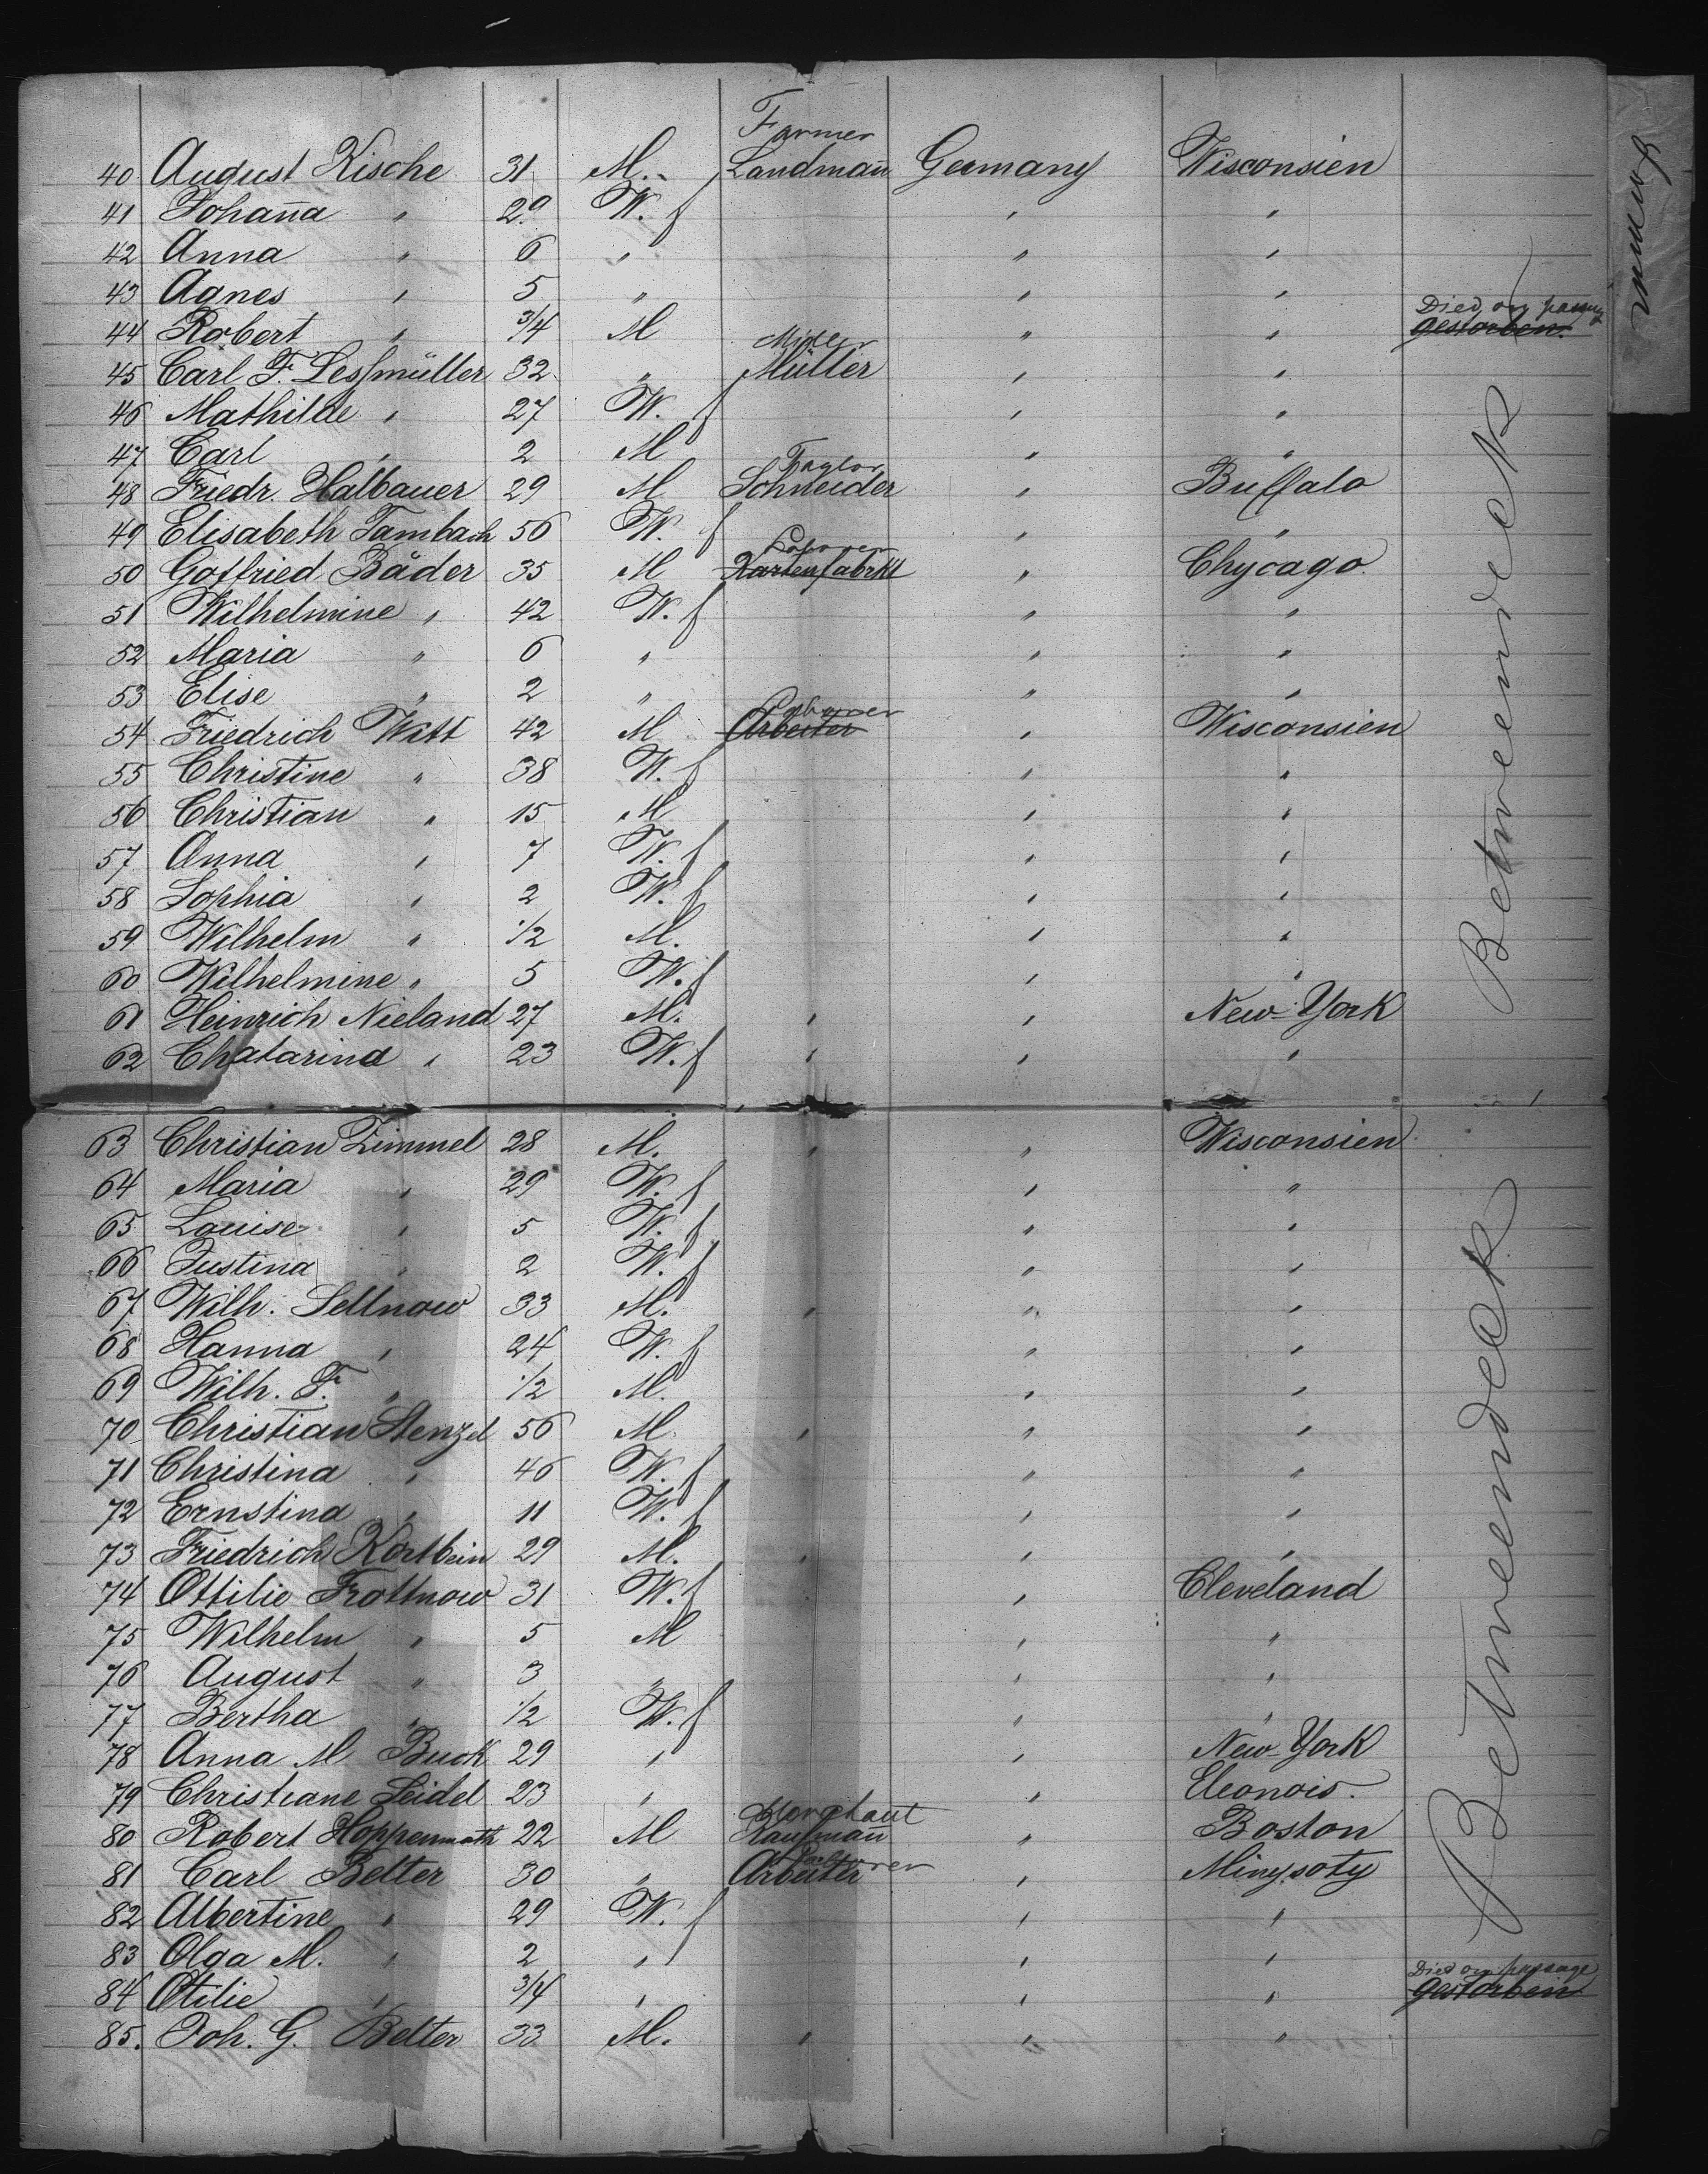 Farmer
40 August Kische 31 M. Landmañ Germany Wisconsien
41 Johaña " 29 W. f " "
42 Anna " 6 " " "
43 Agnes " 5 " " "
Died on passage
44 Robert " 3/4 M " " gestorben.
Miller
45 Carl F. Lessmüller 32 " Müller " "
46 Mathilde " 27 W. f " "
47 Carl " 2 M " "
Taylor
48 Friedr. Halbauer 29 M Schneider " Buffalo
49 Elisabeth Tambach 56 W. f " "
Laborer
50 Gotfried Båder 35 M Kartenfabrkt " Chycago
51 Wilhelmine " 42 W. f " "
52 Maria " 6 " " "
53 Elise " 2 " " "
Laborer
54 Friedrich Witt 42 M Arbeiter " Wisconsien
55 Christine " 38 W. f " "
56 Christian " 15 M " "
57 Anna " 7 W. f " "
58 Sophia " 2 W. f " "
59 Wilhelm " 1/2 M. " "
60 Wilhelmine " 5 W. f " "
61 Heinrich Nieland 27 M. " " New-York
62 Chatarina " 23 W. f " " "
63 Christian Zimmel 28 M. " " Wisconsien
64 Maria " 29 W. f " "
65 Louise " 5 W. f " "
66 Justina " 2 W. f " "
67 Wilh. Sellnow 33 M. " " "
68 Hanna " 24 W. f " "
69 Wilh. F. " 1/2 M. " "
70 Christian Stenzel 56 M. " " "
71 Christina " 46 W. f " "
72 Ernstina " 11 W. f " "
73 Friedrich Kortbein 29 M. " " "
74 Ottilie Trottnow 31 W. f " Cleveland
75 Wilhelm " 5 M " "
76 August " 3 " " "
77 Bertha " 1/2 W. f " "
78 Anna M Buck 29 " " New-York
79 Christiane Seidel 23 " " Eleonois.
Merchant
80 Robert Hoppenrath 22 M Kaufmañ " Boston
Laborer
81 Carl Belter 30 " Arbeiter " Minysoty
82 Albertine " 29 W. f " "
83 Olga M. " 2 " " "
Died on passage
84 Otilie " 3/4 " " " gestorben
85. Joh. G. Belter 33 M. " " "
Betweendeck
Betweendeck